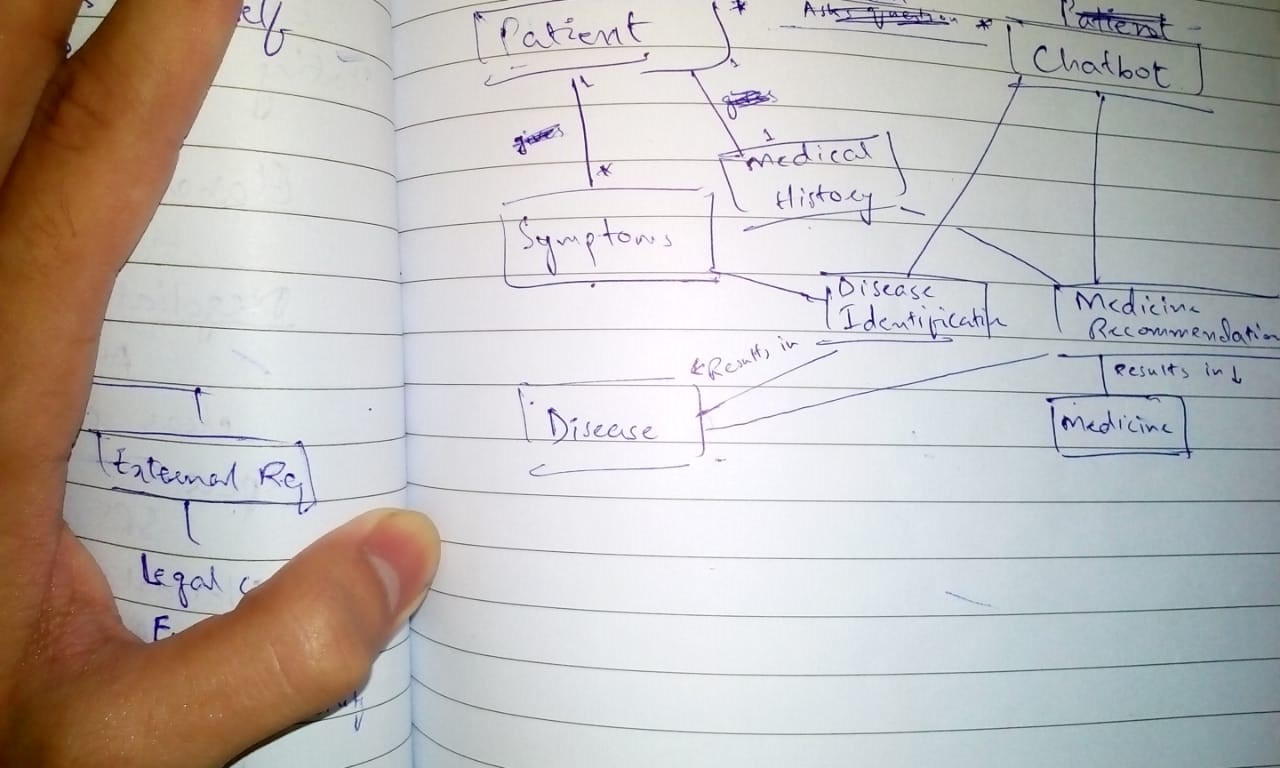 elf
External Req
Legal
Patient
*
Asks question
*
Patient
Chatbot
gives
1
*
gives
1
1
Medical
History
Symptoms
Disease
Identification
Medicine
Recommendation
Results in
Disease
Results in ↓
Medicine